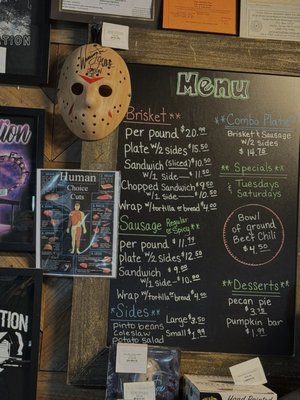 Menu
**Brisket**
per pound $20.99
plate w/2 sides $15.50
Sandwich (sliced) $10.50
w/1 side $11.50
Chopped Sandwich $9.50
w/1 side $10.50
Wrap w/tortilla or bread $4.00
Sausage Regular or Spicy
per pound $11.99
Plate w/2 sides $12.50
Sandwich $9.00
w/1 side $10.00
Wrap w/tortilla or bread $4.00
*Sides*
pinto beans
coleslaw
potato salad
Large $3.50
Small $1.99
**Combo Plate**
Brisket & Sausage
w/2 sides
$14.75
**Specials**
Tuesdays
&
Saturdays
Bowl of
ground
Beef Chili
$4.50
**Desserts**
pecan pie
$3.75
pumpkin bar
$1.99
Human
Choice
Cuts
Hand Painted